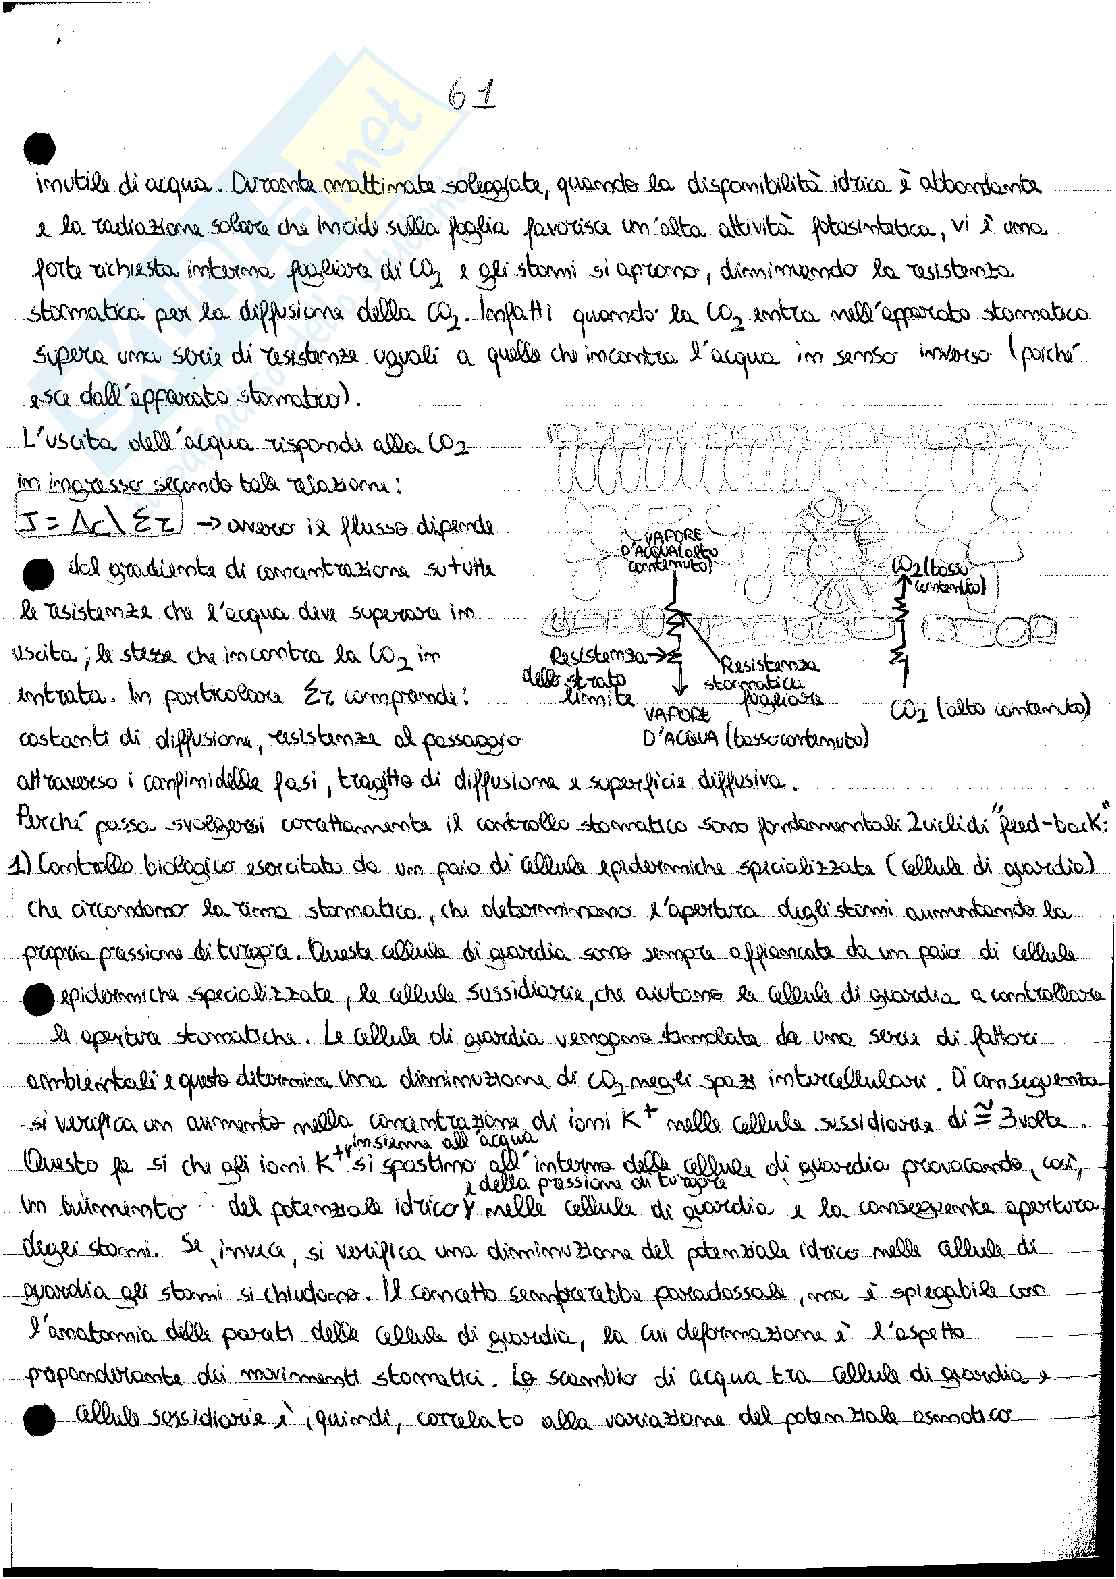 61
inutile di acqua. Durante mattinate soleggiate, quando la disponibilità idrica è abbondante
e la radiazione solare che incide sulla foglia favorisce un'alta attività fotosintetica, vi è una
forte richiesta interna fogliare di CO2 e gli stomi si aprono, diminuendo la resistenza
stomatica per la diffusione della CO2. Infatti quando la CO2 entra nell'apparato stomatico
supera una serie di resistenze uguali a quelle che incontra l'acqua in senso inverso (poiché
esce dall'apparato stomatico).
L'uscita dell'acqua risponde alla CO2
in ingresso secondo tale relazione:
J = Δc\ Σr → ovvero il flusso dipende
dal gradiente di concentrazione su tutte
le resistenze che l'acqua deve superare in
uscita; le stesse che incontra la CO2 in
entrata. In particolare Σr comprende:
costanti di diffusione, resistenze al passaggio
attraverso i confini delle fasi, tragitto di diffusione e superficie diffusiva.
VAPORE
D'ACQUA (alto
contenuto)
CO2 (basso
contenuto)
Resistenza
dello strato
limite
Resistenza
stomatica
fogliare
VAPORE
D'ACQUA (basso contenuto)
CO2 (alto contenuto)
Perché possa svolgersi correttamente il controllo stomatico sono fondamentali 2 cicli di "feed-back":
1) Controllo biologico esercitato da un paio di cellule epidermiche specializzate (cellule di guardia)
che circondano la rima stomatica, che determinano l'apertura degli stomi aumentando la
propria pressione di turgore. Queste cellule di guardia sono sempre affiancate da un paio di cellule
epidermiche specializzate, le cellule sussidiarie, che aiutano le cellule di guardia a controllare
le aperture stomatiche. Le cellule di guardia vengono stimolate da una serie di fattori
ambientali e questo determina una diminuzione di CO2 negli spazi intercellulari. Di conseguenza
si verifica un aumento nella concentrazione di ioni K+ nelle cellule sussidiarie di ≅ 3 volte.
Questo fa si che gli ioni K+ insieme all'acqua si spostino all'interno delle cellule di guardia provocando, così,
un aumento del potenziale idrico e della pressione di turgore nelle cellule di guardia e la conseguente apertura
degli stomi. Se, invece, si verifica una diminuzione del potenziale idrico nelle cellule di
guardia gli stomi si chiudono. Il concetto sembrerebbe paradossale, ma è spiegabile con
l'anatomia delle pareti delle cellule di guardia, la cui deformazione è l'aspetto
preponderante dei movimenti stomatici. Lo scambio di acqua tra cellule di guardia e
cellule sussidiarie è, quindi, correlato alla variazione del potenziale osmotico